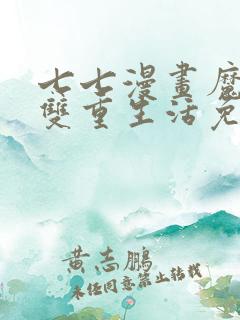 七七漫畫魔
雙重生活免
黄志鹏
未经同意禁止转载